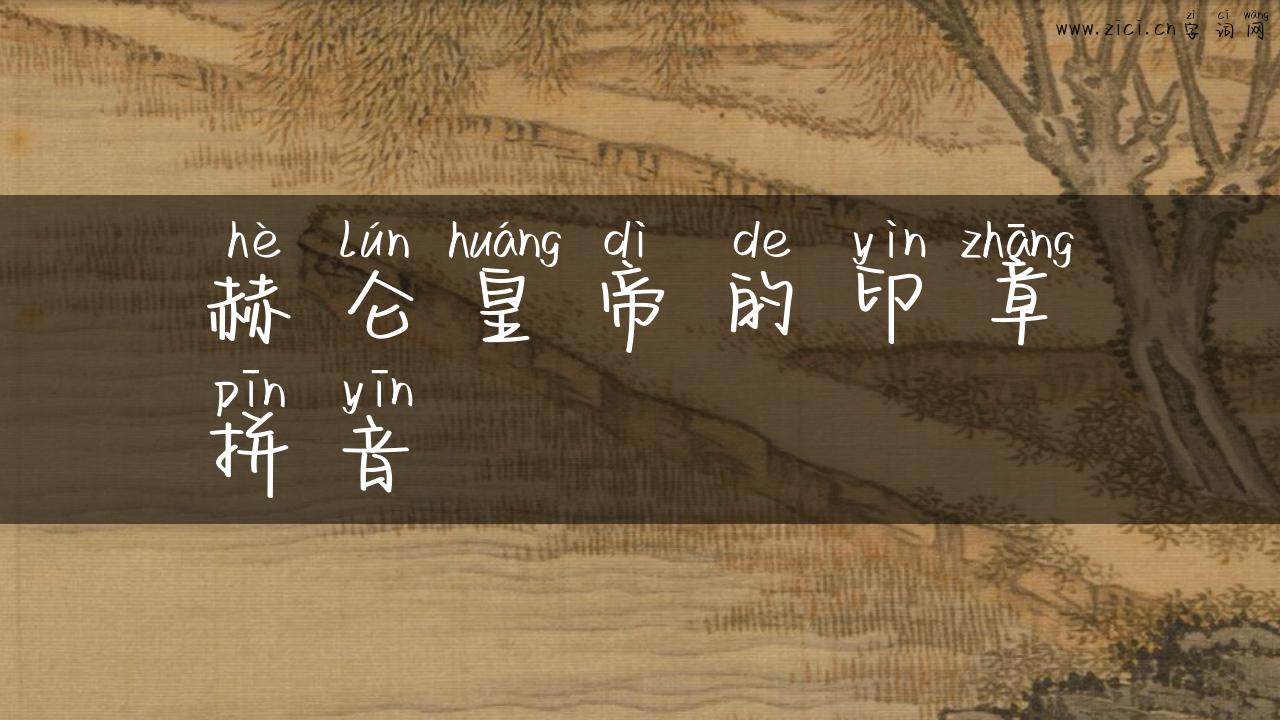 www.zici.cn zì cí wǎng
字词网
hè lún huáng dì de yìn zhāng
赫仑皇帝的印章
pīn yīn
拼音